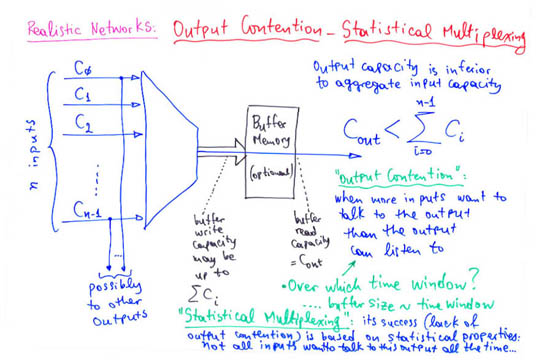 Realistic Networks: Output Contention - Statistical Multiplexing
Output capacity is inferior
to aggregate input capacity
n inputs
C0
C1
C2
Cn-1
possibly
to other
outputs
Buffer
Memory
(optional)
buffer
write
capacity
may be
up to
∑Ci
buffer
read
capacity
= Cout
n-1
Cout < ∑ Ci
i=0
"Output Contention":
when more inputs want to
talk to the output
than the output
can listen to
• Over which time window?
.... buffer size ~ time window
"Statistical Multiplexing": its success (lack of
output contention) is based on statistical properties:
not all inputs want to talk to this output all the time...